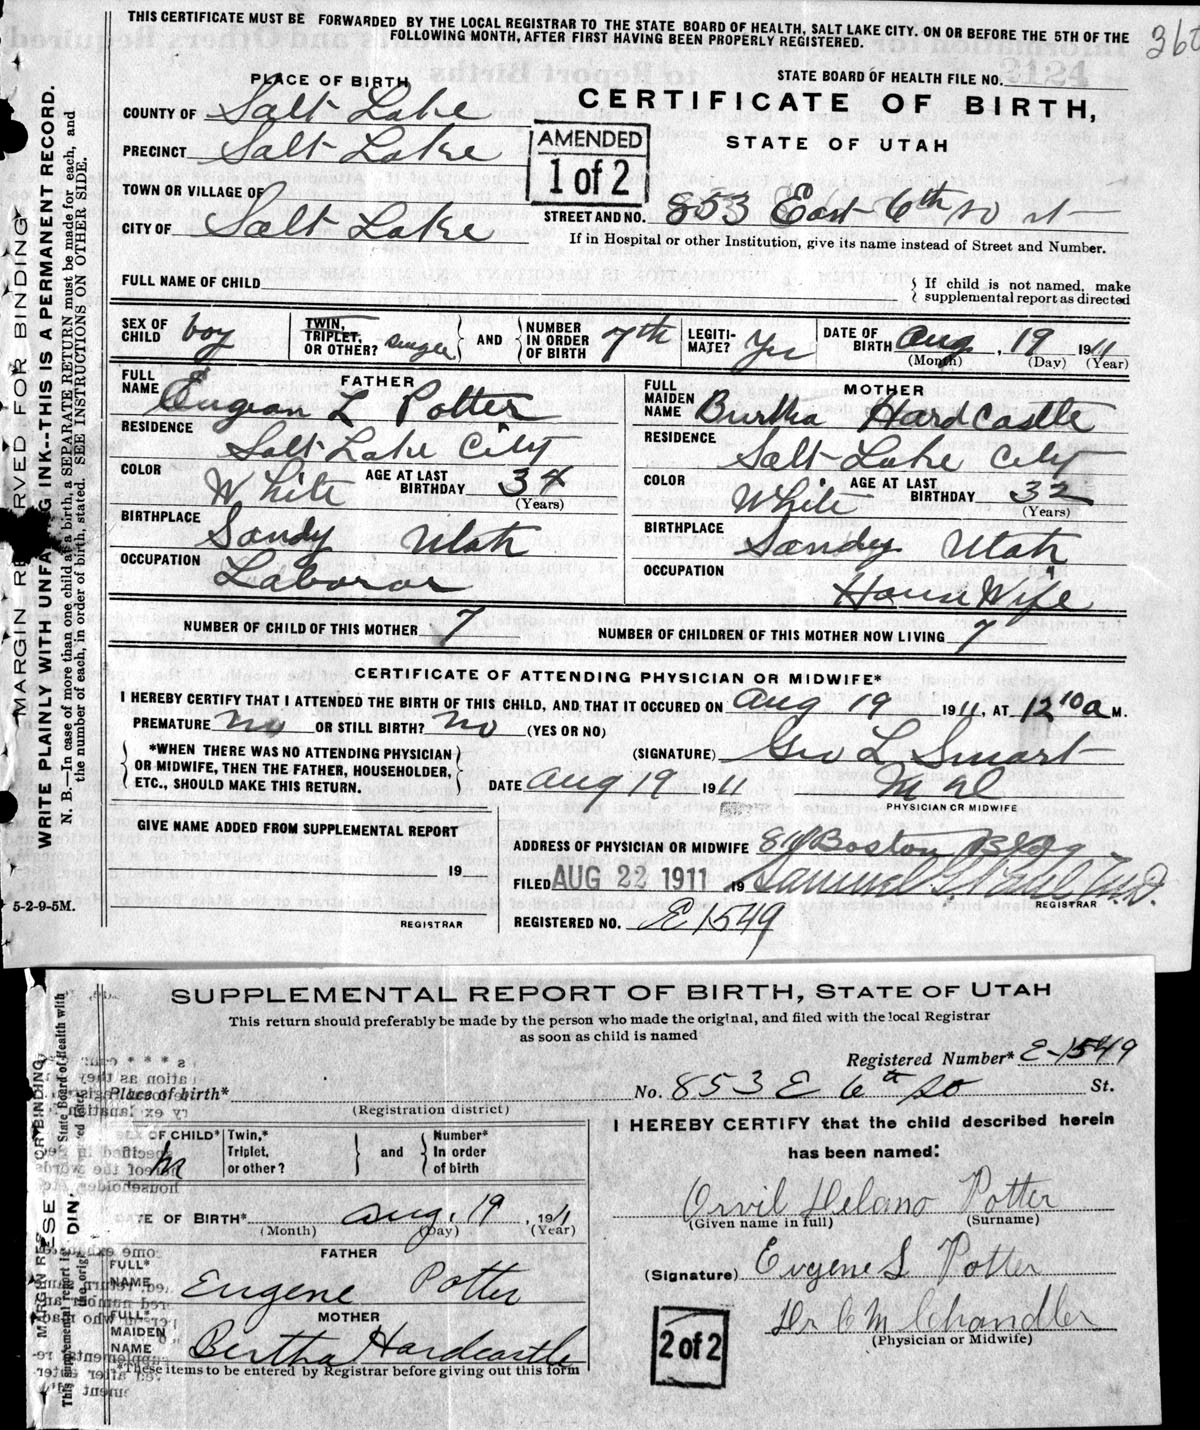 THIS CERTIFICATE MUST BE FORWARDED BY THE LOCAL REGISTRAR TO THE STATE BOARD OF HEALTH, SALT LAKE CITY. ON OR BEFORE THE 5TH OF THE
FOLLOWING MONTH, AFTER FIRST HAVING BEEN PROPERLY REGISTERED.
PLACE OF BIRTH
STATE BOARD OF HEALTH FILE NO.
CERTIFICATE OF BIRTH,
STATE OF UTAH
COUNTY OF Salt Lake
PRECINCT Salt Lake
AMENDED
1 of 2
TOWN OR VILLAGE OF
STREET AND NO. 853 East 6th So st
CITY OF Salt Lake
If in Hospital or other Institution, give its name instead of Street and Number.
FULL NAME OF CHILD
If child is not named, make
supplemental report as directed
SEX OF CHILD boy
TWIN, TRIPLET, OR OTHER? single
AND
NUMBER IN ORDER OF BIRTH 7th
LEGITIMATE? Yes
DATE OF BIRTH Aug, 19 1911
(Month) (Day) (Year)
FATHER
FULL NAME Eugean L Potter
RESIDENCE Salt Lake City
COLOR White AGE AT LAST BIRTHDAY 34
(Years)
BIRTHPLACE Sandy Utah
OCCUPATION Laboror
MOTHER
FULL MAIDEN NAME Burtha Hardcastle
RESIDENCE Salt Lake City
COLOR White AGE AT LAST BIRTHDAY 32
(Years)
BIRTHPLACE Sandy Utah
OCCUPATION House Wife
NUMBER OF CHILD OF THIS MOTHER 7 NUMBER OF CHILDREN OF THIS MOTHER NOW LIVING 7
CERTIFICATE OF ATTENDING PHYSICIAN OR MIDWIFE*
I HEREBY CERTIFY THAT I ATTENDED THE BIRTH OF THIS CHILD, AND THAT IT OCCURED ON Aug 19 1911, AT 12 10 a M.
PREMATURE No OR STILL BIRTH? No (YES OR NO)
*WHEN THERE WAS NO ATTENDING PHYSICIAN
OR MIDWIFE, THEN THE FATHER, HOUSEHOLDER,
ETC., SHOULD MAKE THIS RETURN.
(SIGNATURE) Geo L Smart
DATE Aug 19 1911
PHYSICIAN OR MIDWIFE
GIVE NAME ADDED FROM SUPPLEMENTAL REPORT
19
REGISTRAR
ADDRESS OF PHYSICIAN OR MIDWIFE Boston Bldg
FILED AUG 22 1911 19 Samuel M.D.
REGISTRAR
REGISTERED NO. E 1549
5-2-9-5M.
MARGIN RESERVED FOR BINDING
WRITE PLAINLY WITH UNFADING INK--THIS IS A PERMANENT RECORD.
N. B.—In case of more than one child at a birth, a SEPARATE RETURN must be made for each, and
the number of each, in order of birth, stated. SEE INSTRUCTIONS ON OTHER SIDE.
SUPPLEMENTAL REPORT OF BIRTH, STATE OF UTAH
This return should preferably be made by the person who made the original, and filed with the local Registrar
as soon as child is named
Registered Number* E-1549
Place of birth*
(Registration district)
No. 853 E 6th So St.
OF CHILD* M
Twin,* Triplet, or other?
and
Number* In order of birth
I HEREBY CERTIFY that the child described herein
has been named:
DATE OF BIRTH* Aug. 19, 1911
(Month) (Day) (Year)
Orvil Delano Potter
(Given name in full) (Surname)
FATHER
FULL* NAME Eugene Potter
(Signature) Eugene L Potter
MOTHER
FULL* MAIDEN NAME Bertha Hardcastle
Dr C M Chandler
(Physician or Midwife)
2 of 2
*These items to be entered by Registrar before giving out this form